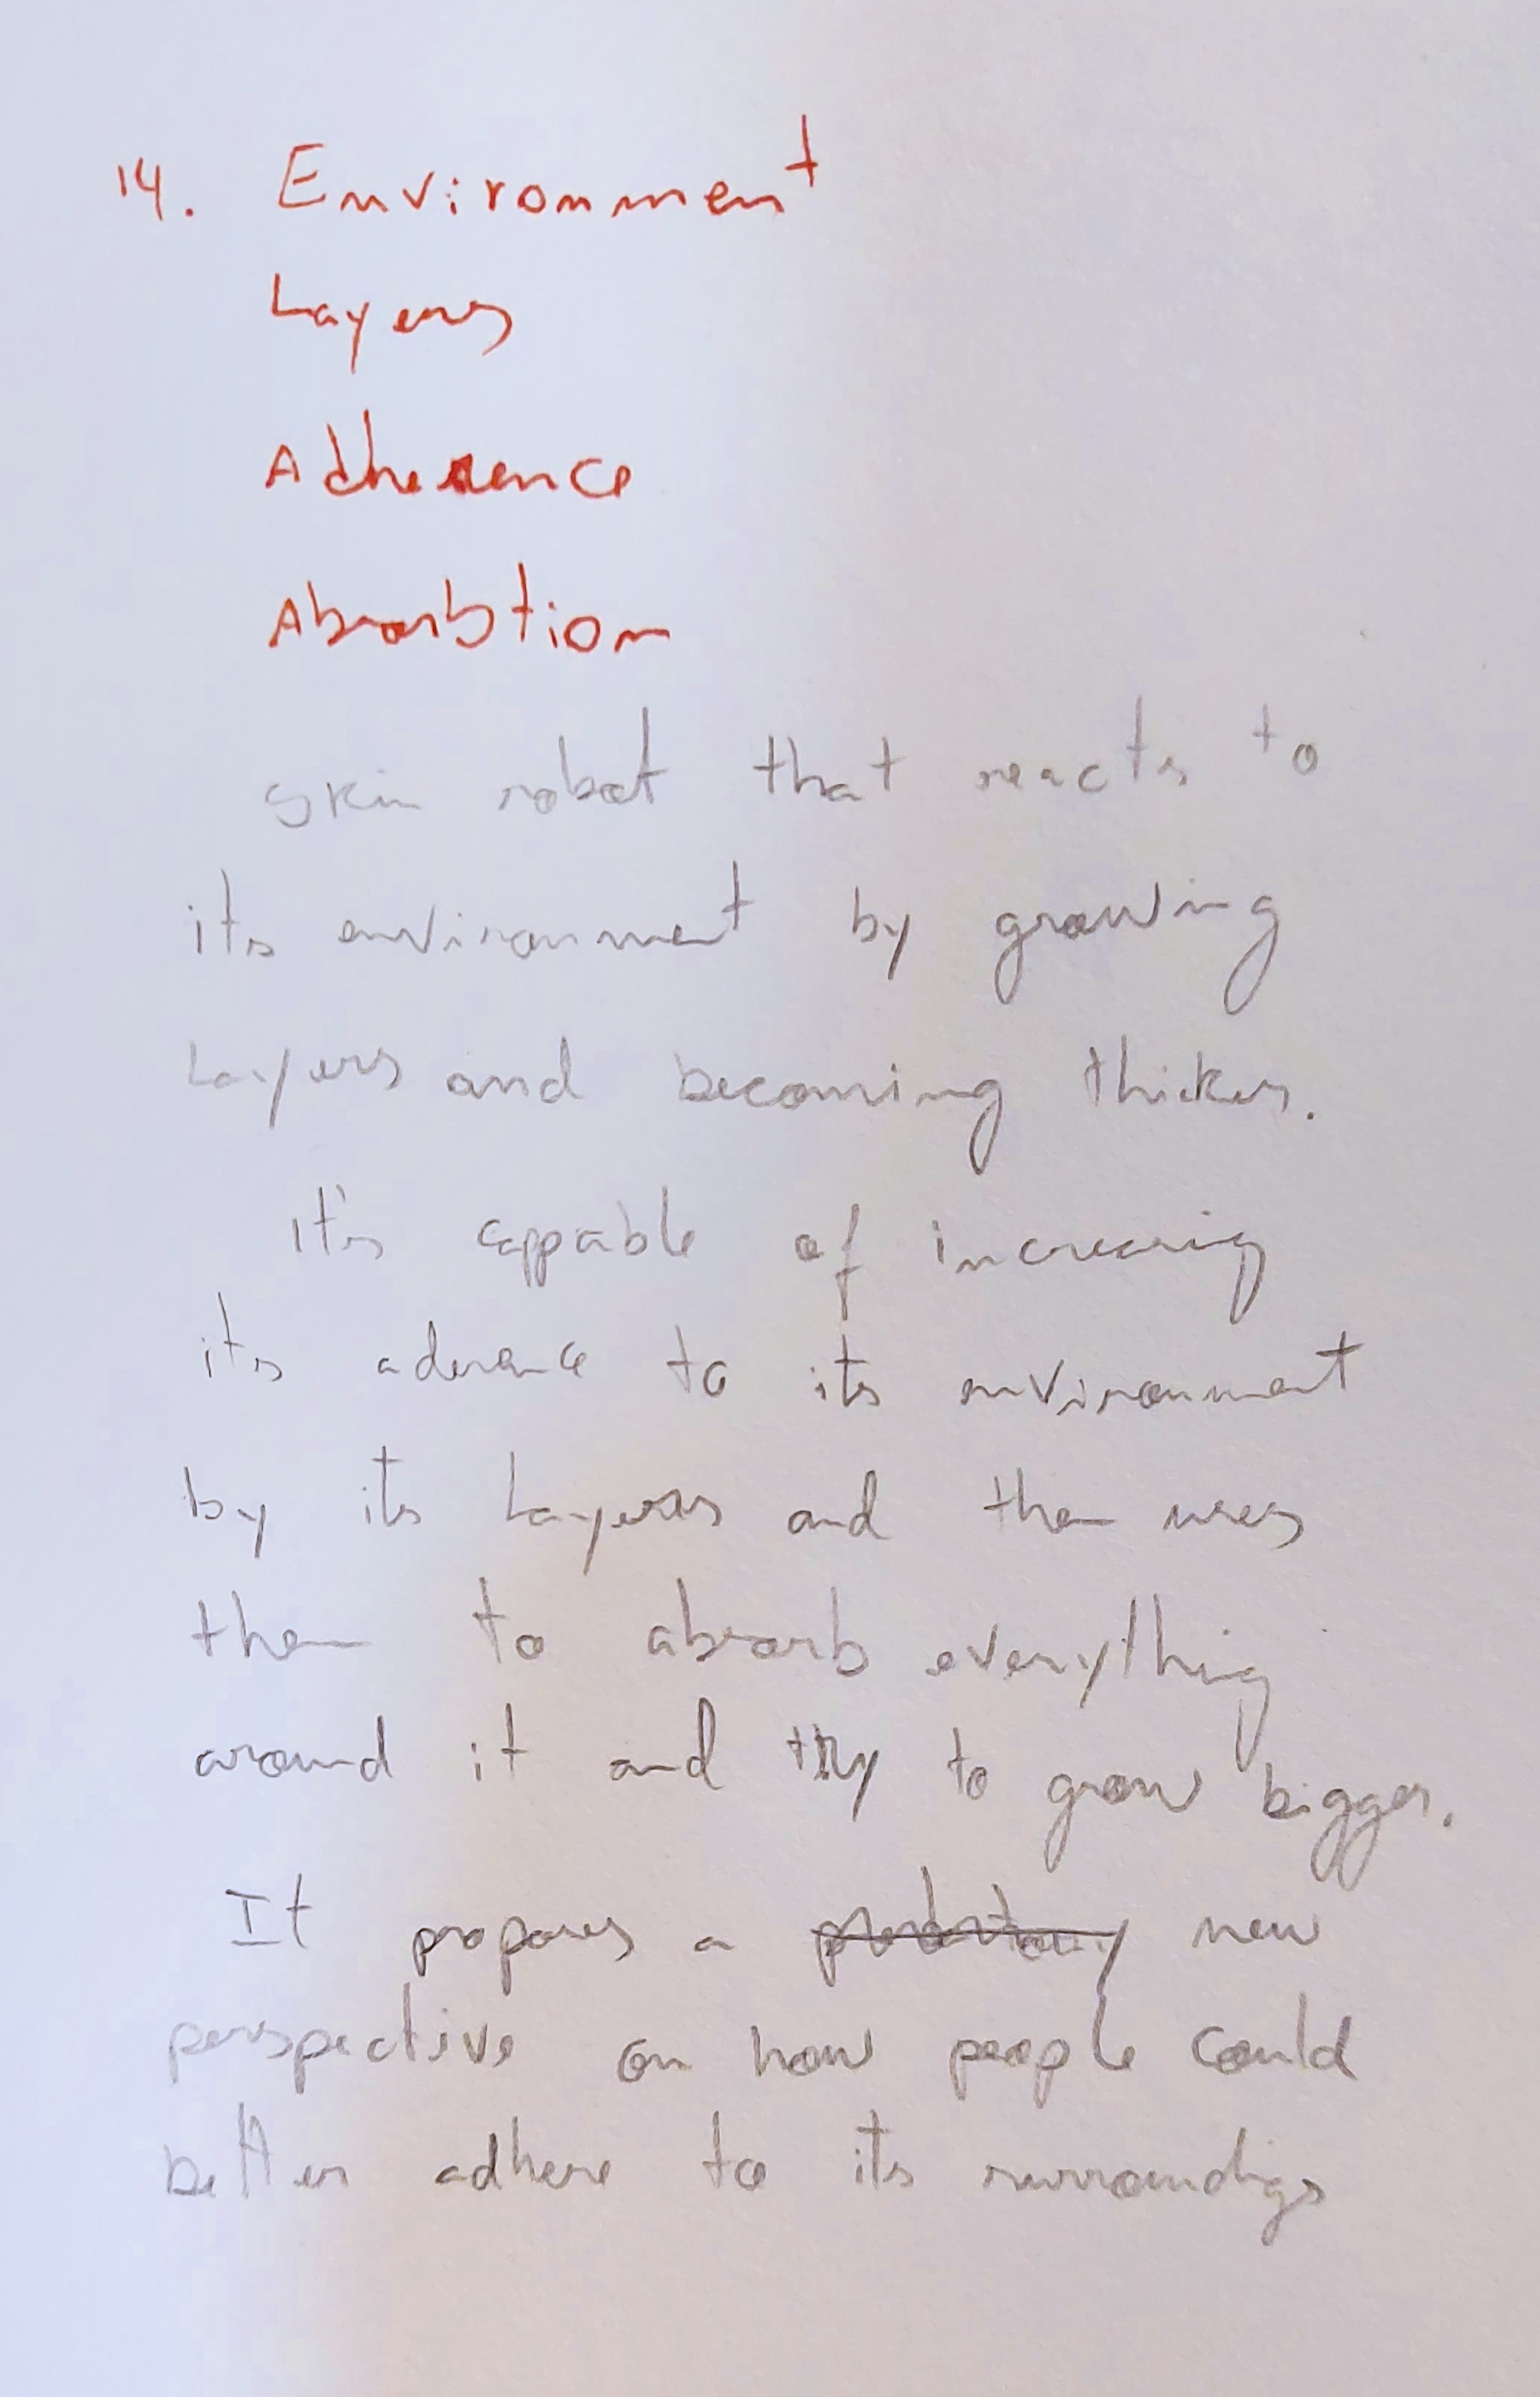 14. Environment
Layers
Adherence
Absorbtion
Skin robot that reacts to
its environment by growing
Layers and becoming thicker.
It's cappable of increasing
its aderence to its environment
by its Layers and then uses
them to absorb everything
around it and try to grow bigger.
It proposes a new
perspective on how people could
better adhere to its surroundigs